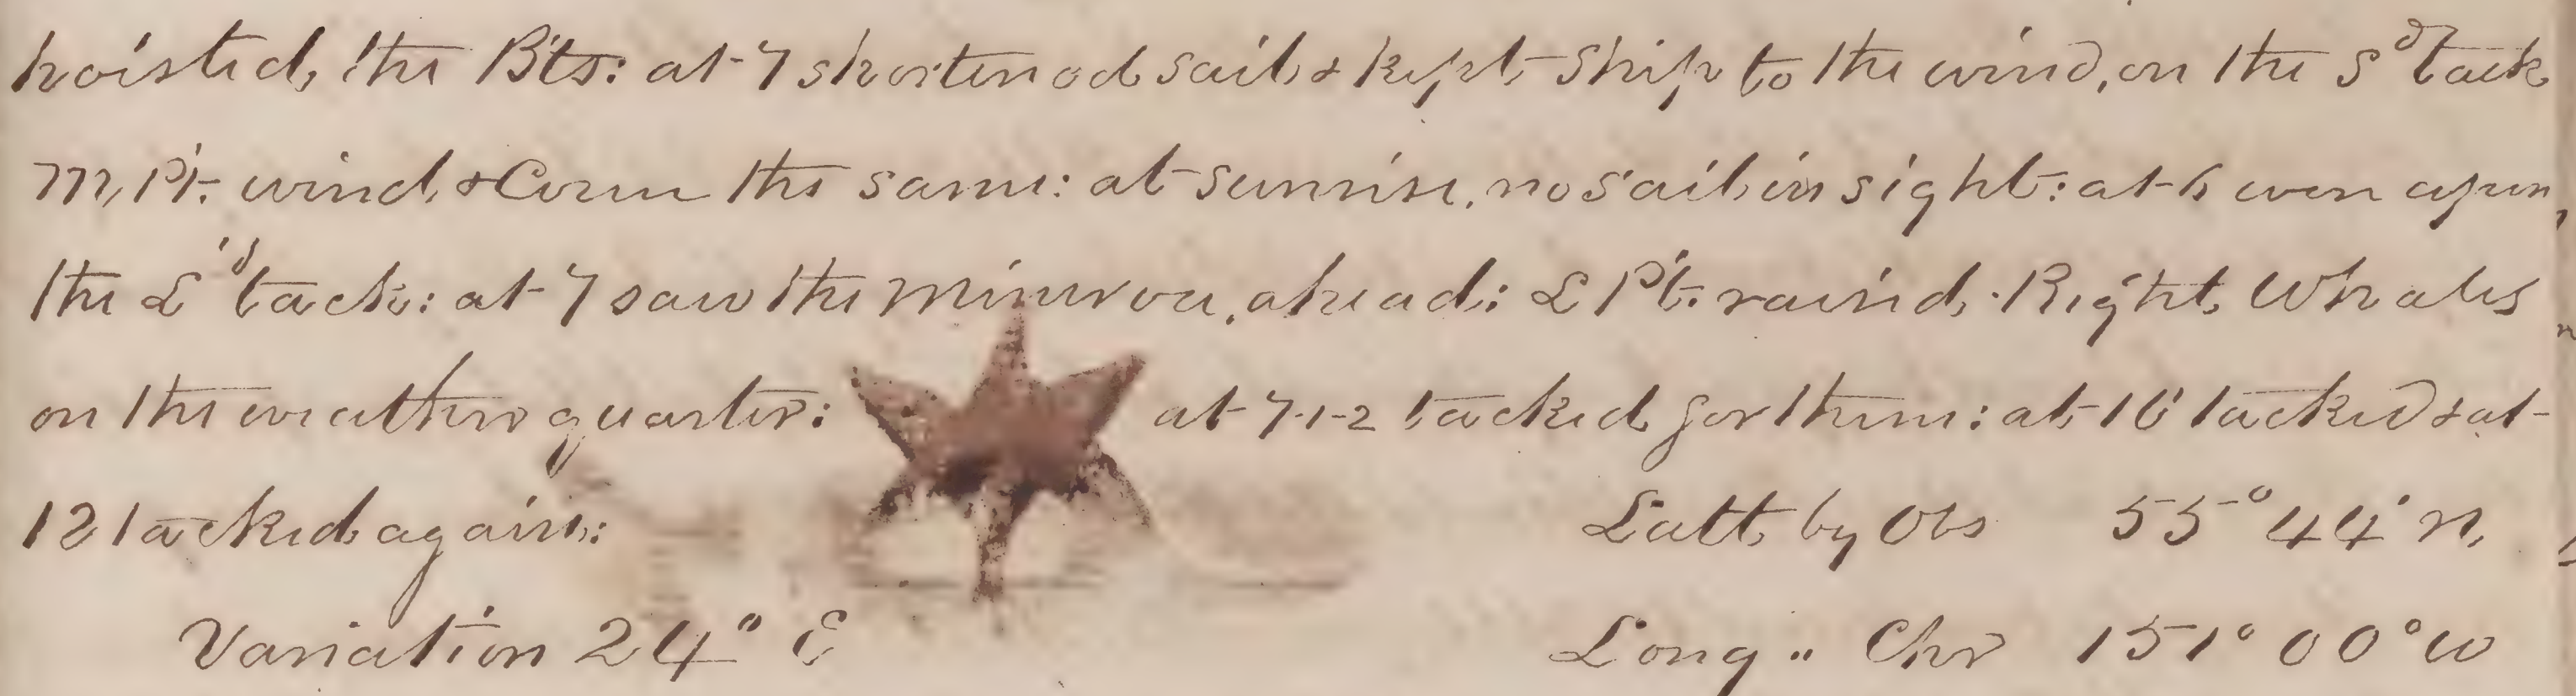 hoisted, the Bts: at 7 shortened sail & kept ship to the wind, on the Sd tack
M, Pt. wind & Corse the same: at sunrise, no sail in sight: at 6 wen apun,
the Ld tack: at 7 saw the Minerva, ahead: L Pt. raised Right Whales
on the weather quarter: at 7-1-2 tacked for them: at 10 tacked & at
12 tacked again: Latt, by Obs 55° 44' N,
Variation 24° E Long " Chr 151° 00° W